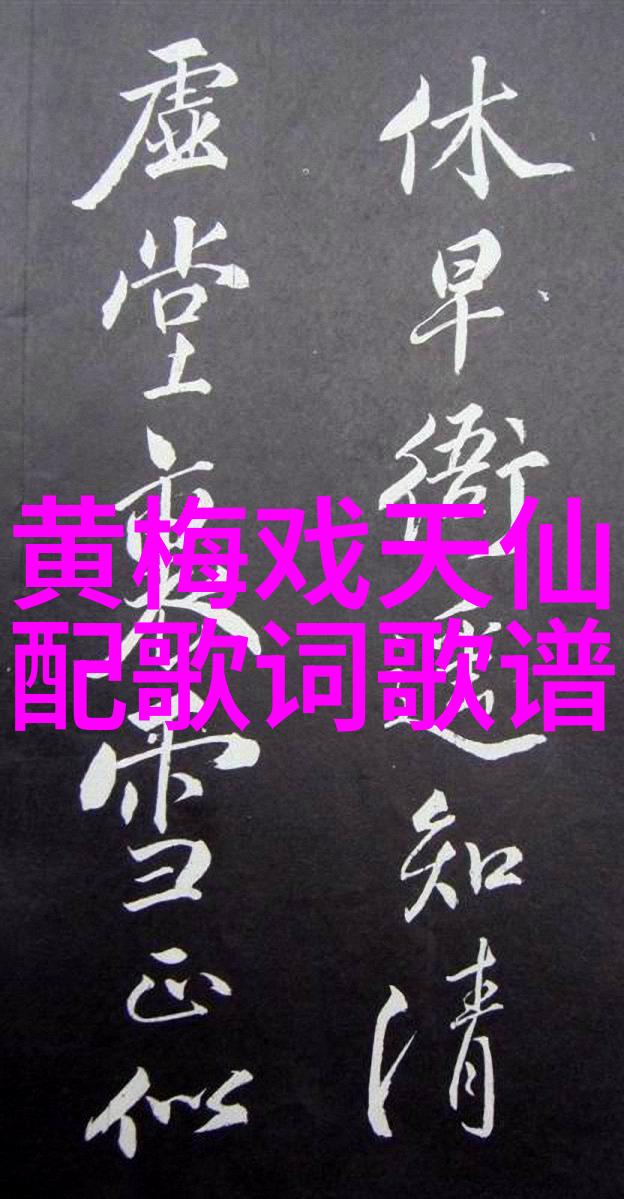 休早衙遥知清
虚堂裹雪正似
黄梅戏天仙
配歌词歌谱